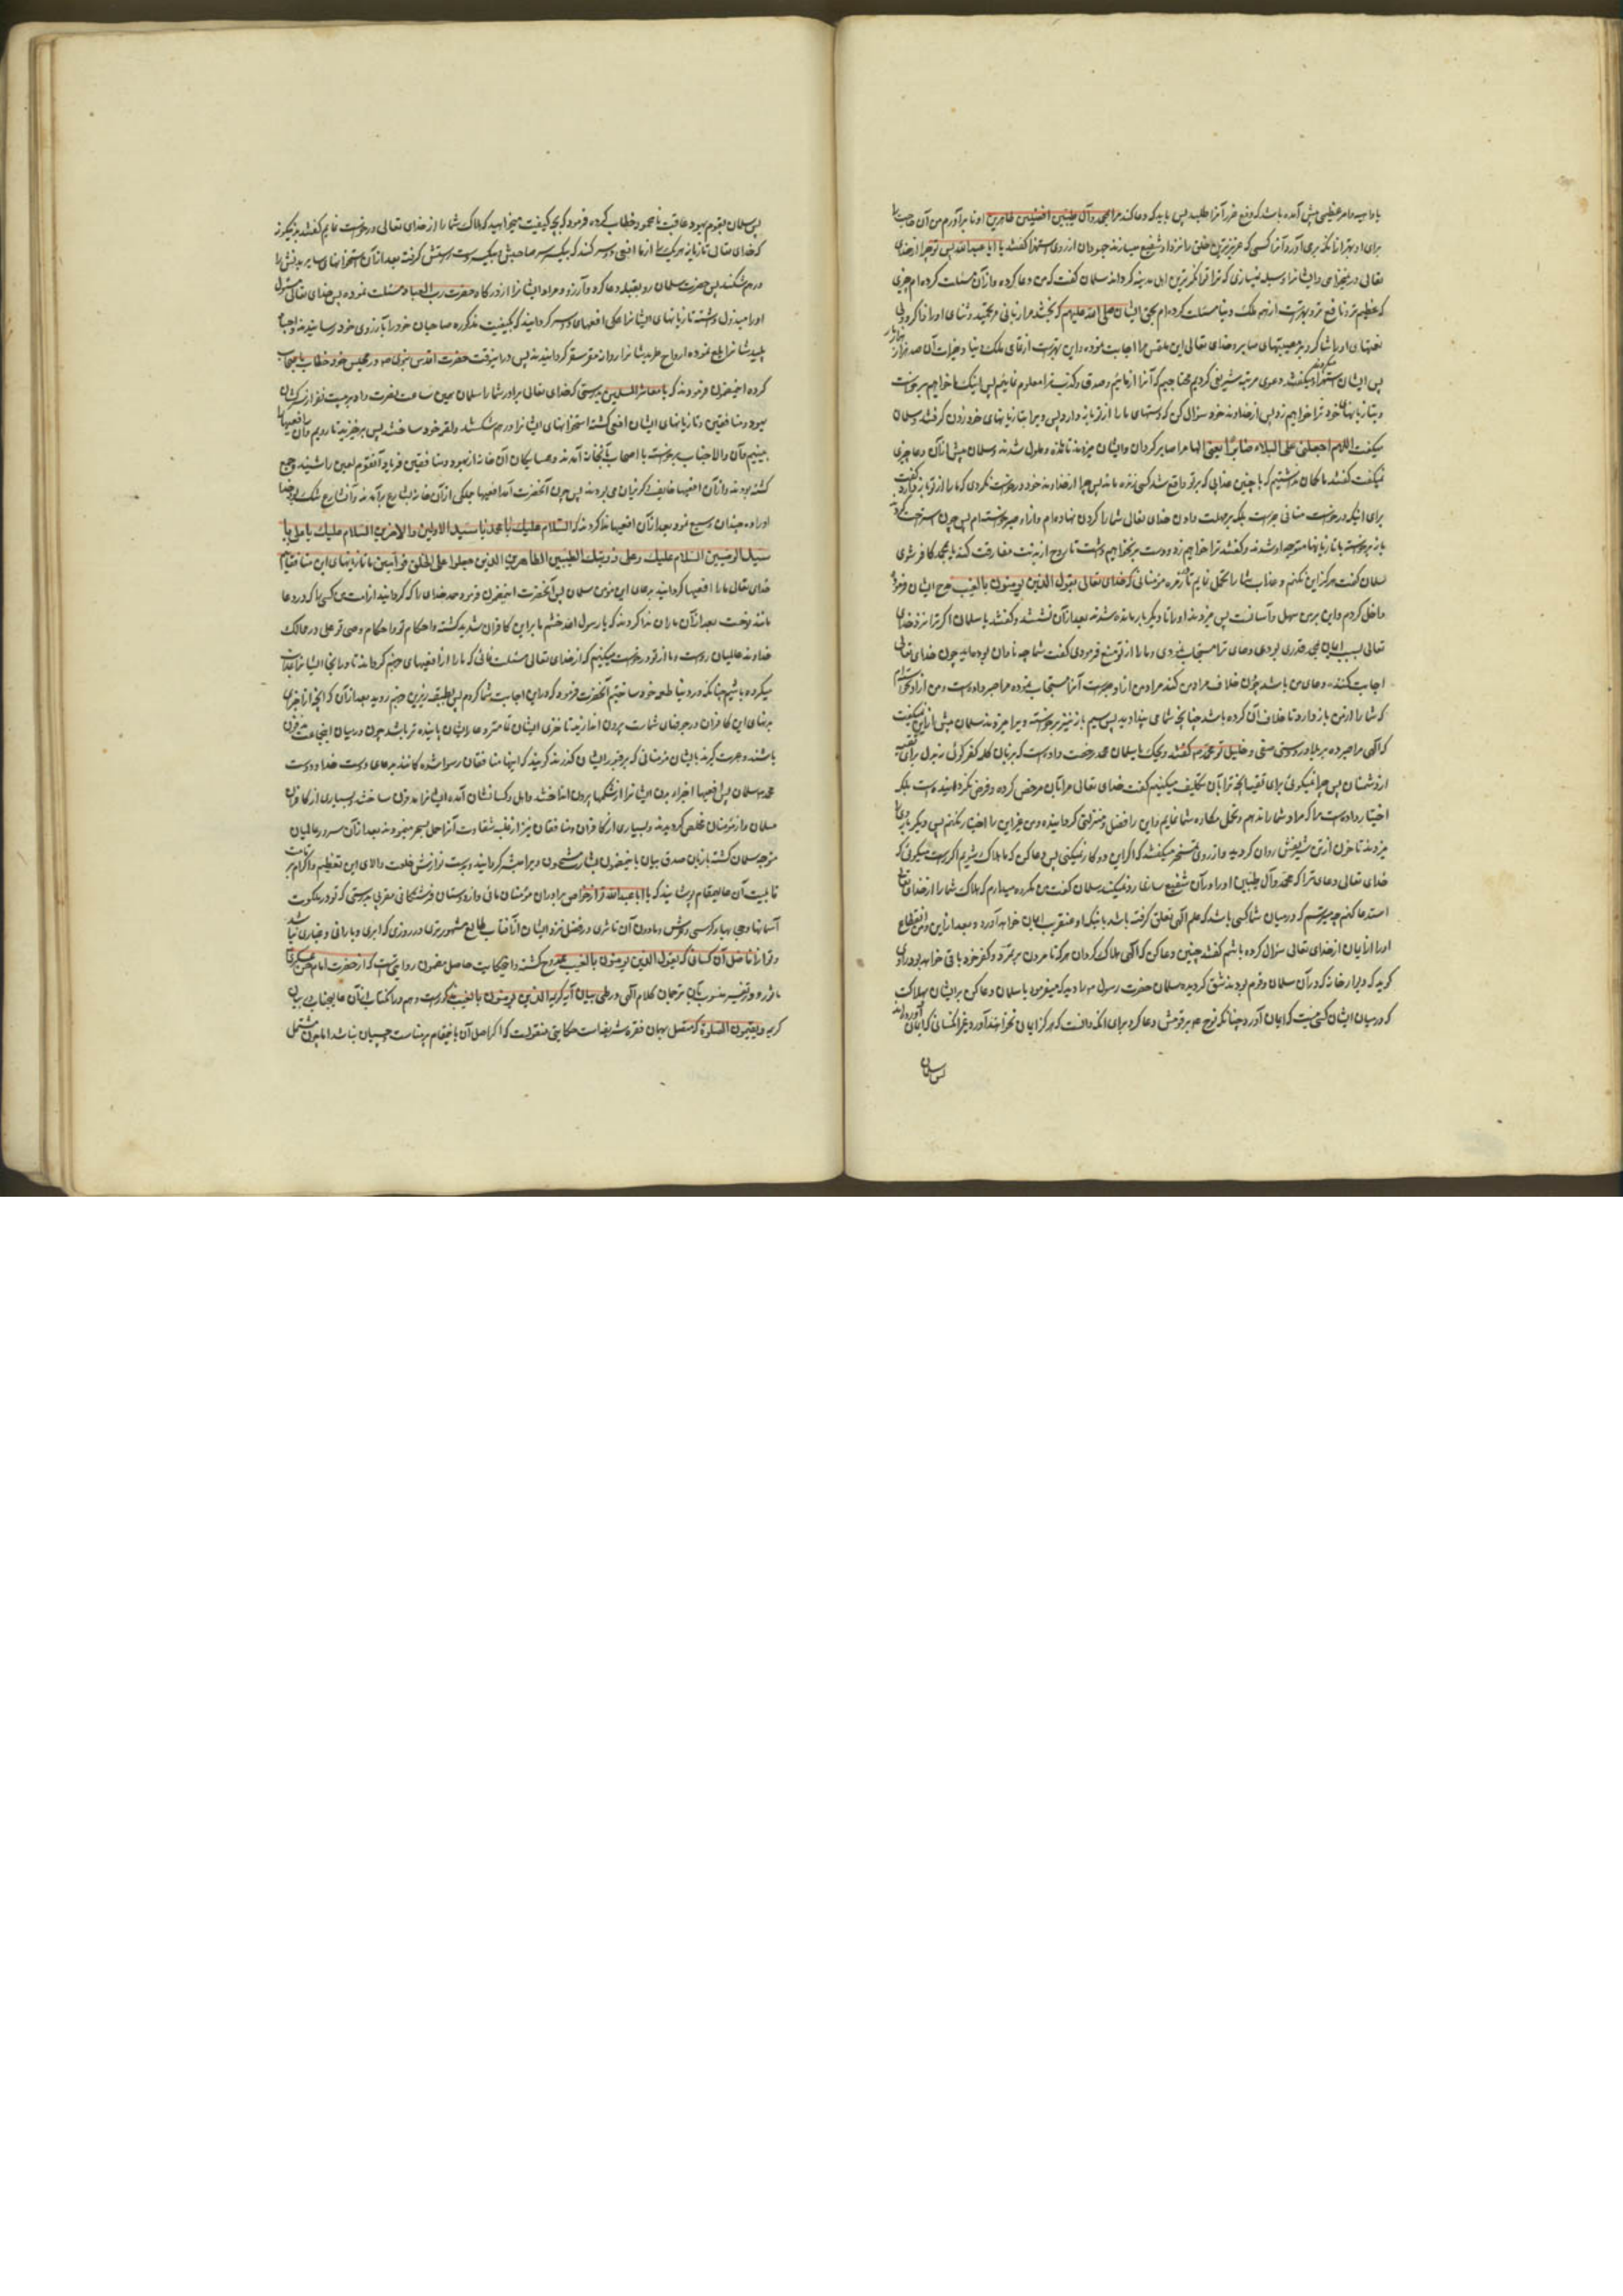 یا داهیه و امر عظیمی پیش آمده باشد که دفع ضرر آنرا طلبد پس باید که دعا کند مرا بمحمد و آل طیبین افضلین طاهرین او تا برآورم من آن حاجت را
برای او بهتر از آنکه برمی آورد آنرا کسی که عزیزترین خلق را نزد او شفیع میسازند جهودان از روی استهزا گفتند یا ابا عبدالله پس تو چرا از خدای
تعالی در نمیخواهی و ایشانرا وسیله نمیسازی که ترا توانگرترین اهل مدینه گرداند سلمان گفت که من دعا کرده و از آن مسئلت کرده ام چیزی
که عظیم تر و نافع تر و بهترست از همه ملک دنیا مسئلت کرده ام بحق ایشان صلی الله علیهم که بخشد مرا زبانی تمجید و ثنای او را ذاکر و دلی
نعمتهای او را شاکر و بر مصیبتهای صابر و خدای تعالی این ملتمس مرا اجابت نموده و این بهترست از تمامی ملک دنیا و خیرات آن صد هزار هزار بار
پس ایشان استهزا کرده میگفتند دعوی مرتبه شریفی کردی محتاجیم که آنرا آزمائیم و صدق و کذب ترا معلوم نمائیم پس اینک ما خواهیم برخاست
و بتازیانهای خود ترا خواهیم زد پس از خداوند خود سؤال کن که دستهای ما را از تو باز دارد پس ویرا بتازیانهای خود زدن گرفتند و سلمان
میگفت اللهم اجعلنی علی البلاء صابرا یعنی الها مرا صابر گردان و ایشان میزدند تا مانده و ملول شدند و سلمان بیش از آن دعا چیزی
نمیگفت گفتند ما گمان نداشتیم که با چنین عذابی که بر تو واقع شد کسی زنده ماند پس چرا از خداوند خود درخواست نکردی که ما را از تو باز دارد گفت
برای اینکه درخواست منافی صبرست بلکه بر مهلت دادن خدای تعالی شما را گردن نهاده ام و از او صبر خواسته ام پس چون استراحت کردند
باز برخاسته با تازیانها متوجه او شدند و گفتند ترا خواهیم زد و دست بر نخواهیم داشت تا روح از بدنت مفارقت کند یا بمحمد کافر شوی
سلمان گفت هرگز این نکنم و عذاب شما را تحمل نمایم تا در زمره مؤمنانی که خدای تعالی بقول الذین یؤمنون بالغیب مدح ایشان فرموده
داخل گردم و این بر من سهل و آسانست پس میزدند او را تا دیگر بار مانده شدند بعد از آن نشستند و گفتند یا سلمان اگر ترا نزد خدای
تعالی بسبب ایمان بمحمد قدری بودی دعای ترا مستجاب نمودی و ما را از تو منع فرمودی گفت شما چه نادان بوده اید چون خدای تعالی
اجابت کننده دعای من باشد چون خلاف مراد من کند مراد من از او صبرست آنرا مستجاب نموده مرا صبر داده است و من از او نخواستم
که شما را از من باز دارد تا خلاف آن کرده باشد چنانچه شما می پندارید پس سیم بار نیز برخاسته ویرا میزدند سلمان بیش از این نمیگفت
که الهی مرا صبر ده بر بلا در دوستی صفی و خلیل تو محمد ص گفتند ویحک یا سلمان محمد رخصت داده است که بزبان کلمه کفر گوئی نه بدل برای تقیه
از دشمنان پس چرا نمیگوئی برای تقیه آنچه ترا بآن تکلیف میکنیم گفت خدای تعالی مرا بآن مرخص کرده و فرض نگردانیده است بلکه
اختیار داده است مرا که مراد شما را ندهم و تحمل مکاره شما نمایم و این را افضل منزلتی گردانیده و من غیر این را اختیار نکنم پس دیگر بار ویرا
میزدند تا خون از تن شریفش روان گردید و از روی تمسخر میگفتند که اگر این دو کار نمیکنی پس دعا کن که ما هلاک شویم اگر راست میگوئی که
خدای تعالی دعای ترا که محمد و آل طیبین او را در آن شفیع سازی رد نمیکند سلمان گفت من مکروه میدارم که هلاک شما را از خدای تعالی
استدعا کنم چه میترسم که در میان شما کسی باشد که علم الهی تعلق گرفته باشد بآنکه او عنقریب ایمان خواهد آورد و بعد از این و من انقطاع
او را از ایمان از خدای تعالی سؤال کرده باشم گفتند چنین دعا کن که الهی هلاک گردان هر که تا مردن بر تمرد و کفر خود باقی خواهد بود راوی
گوید که دیوار خانه که در آن سلمان و قوم بودند شق گردیده سلمان حضرت رسول ص را دید که میفرمود یا سلمان دعا کن بر ایشان بهلاکت
که در میان ایشان کسی نیست که ایمان آورد چنانکه نوح ع بر قومش دعا کرد برای آنکه دانست که هرگز ایمان نخواهند آورد غیر آنکسانی که ایمان آورده اند
پس سلمان
پس سلمان بقوم یهود عاقبت نامحمود خطاب کرده فرمود که بچه کیفیت میخواهید که هلاک شما را از خدای تعالی درخواست نمایم گفتند بدینگونه
که خدای تعالی تازیانه هر یک را از ما افعی دو سر کند که بیک سر صاحبش بیک سر دست راستش گرفته بعد از آن استخوانهای سایر بدنش را
درهم شکنند پس حضرت سلمان رو بقبله دعا کرد و آرزو و مراد ایشانرا از درگاه حضرت رب العباد مسئلت نموده پس خدای تعالی مسئول
او را مبذول داشته تازیانهای ایشانرا همگی افعیهای دو سر گردانید که بکیفیت مذکوره صاحبان خود را بآرزوی خود رسانیدند
پلیدشانرا بلع نموده ارواح طریدشانرا روانه مقر سقر گردانیدند پس در اینوقت حضرت اقدس نبوی ص در مجلس خود خطاب باصحاب
کرده اینمضمون فرمودند که یا معاشر المسلمین بدرستی که خدای تعالی برادر شما را سلمان همین ساعت نصرت داد بر بیست نفر از سرکشان
یهود و منافقین و تازیانهای ایشان افعی گشته استخوانهای ایشانرا درهم شکستند و لقمه خود ساختند پس برخیزید تا رویم و آن افعیها را
ببینیم و آن والاجناب برخاست با اصحاب بآنجانب آمدند و همسایگان آن خانه از یهود و منافقین فریاد آنقوم لعین را شنیده جمع
گشته بودند و از آن افعیها خایف گریزان می بودند پس چون آنحضرت آمد افعیها جملگی از آن خانه بشارع برآمدند و آن شارع تنگ بود خدا
او را ده چندان وسیع نمود بعد از آن افعیها ندا کردند که السلام علیک یا محمد یا سید الاولین والاخرین السلام علیک یا علی یا
سید الوصیین السلام علیک وعلی ذریتک الطیبین الطاهرین الذین جعلوا علی الخلق قوامین ما تازیانهای این منافقانیم
خدای تعالی ما را افعیها گردانید بدعای این مؤمن سلمان پس آنحضرت اینمضمون فرمود حمد خدای را که گردانید از امت من کسی را که در دعا
مانند نوحست بعد از آن ماران ندا کردند که یا رسول الله خشم ما بر این کافران شدید گشته و احکام تو و احکام وصی تو علی در ممالک
خداوند عالمیان رواست و ما از تو درخواست میکنیم که از خدای تعالی مسئلت نمائی که ما را از افعیهای جهنم گرداند تا در آنجا ایشانرا عذاب
میکرده باشیم چنانکه در دنیا طعمه خود ساختیم آنحضرت فرمود که در این اجابت شما کردم پس بطبقه زیرین جهنم روید بعد از آن که آنچه از اجزای
بدنهای این کافران در جوفهای شماست بیرون اندازید تا خزی ایشان تمامتر و عار ایشان پاینده تر باشد چون در میان اینجماعت مدفون
باشند و عبرت گیرند بایشان مؤمنانی که بر قبور ایشان گذرند گویند که اینها منافقان رسوا شده گانند بدعای دوست خدا و دوست
محمد ص سلمان پس افعیها اجزاء بدن ایشانرا از شکمها بیرون انداختند و اهل و کسانشان آمده ایشانرا مدفون ساختند و بسیاری از کافران
مسلمان و از مؤمنان مخلص گردیدند و بسیاری از کافران و منافقان نیز از غلبه شقاوت آنرا حمل بسحر مینمودند بعد از آن سرور عالمیان
متوجه سلمان گشته بزبان صدق بیان باینمضمون بشارت مشحون ویرا مبشر گردانیده بدست نوازش خلعت والای این تعظیم و اکرام بر قامت
قابلیت آن عالیمقام پوشانیدند که یا ابا عبدالله تو از خواص برادران مؤمنان مائی و از دوستان فرشتگانی مقربی بدرستی که تو در ملکوت
آسمانها و حجب و کرسی و عرش و مادون آن تا ثری در فضل نزد ایشان از آفتاب طالع مشهورتری در روزی که ابری و بارانی و غباری نباشد
و تو از افاضل آن کسانی که بقول الذین یؤمنون بالغیب ممدوح گشته و اینحکایت حاصل مضمون روایتیست که از حضرت امام حسن عسکری
ماثور و در تفسیر منسوب بآن ترجمان کلام الهی در طی بیان آیه کریمه الذین یؤمنون بالغیب مذکورست و هم در آنکتاب از آن عالیجناب در بیان
کریمه ویقیمون الصلوة که متصل بهمان فقره شریفه است حکایتی منقولست که اگر اصل آن باینمقام پر مناسبت چسپان نباشد اما چون مشتمل